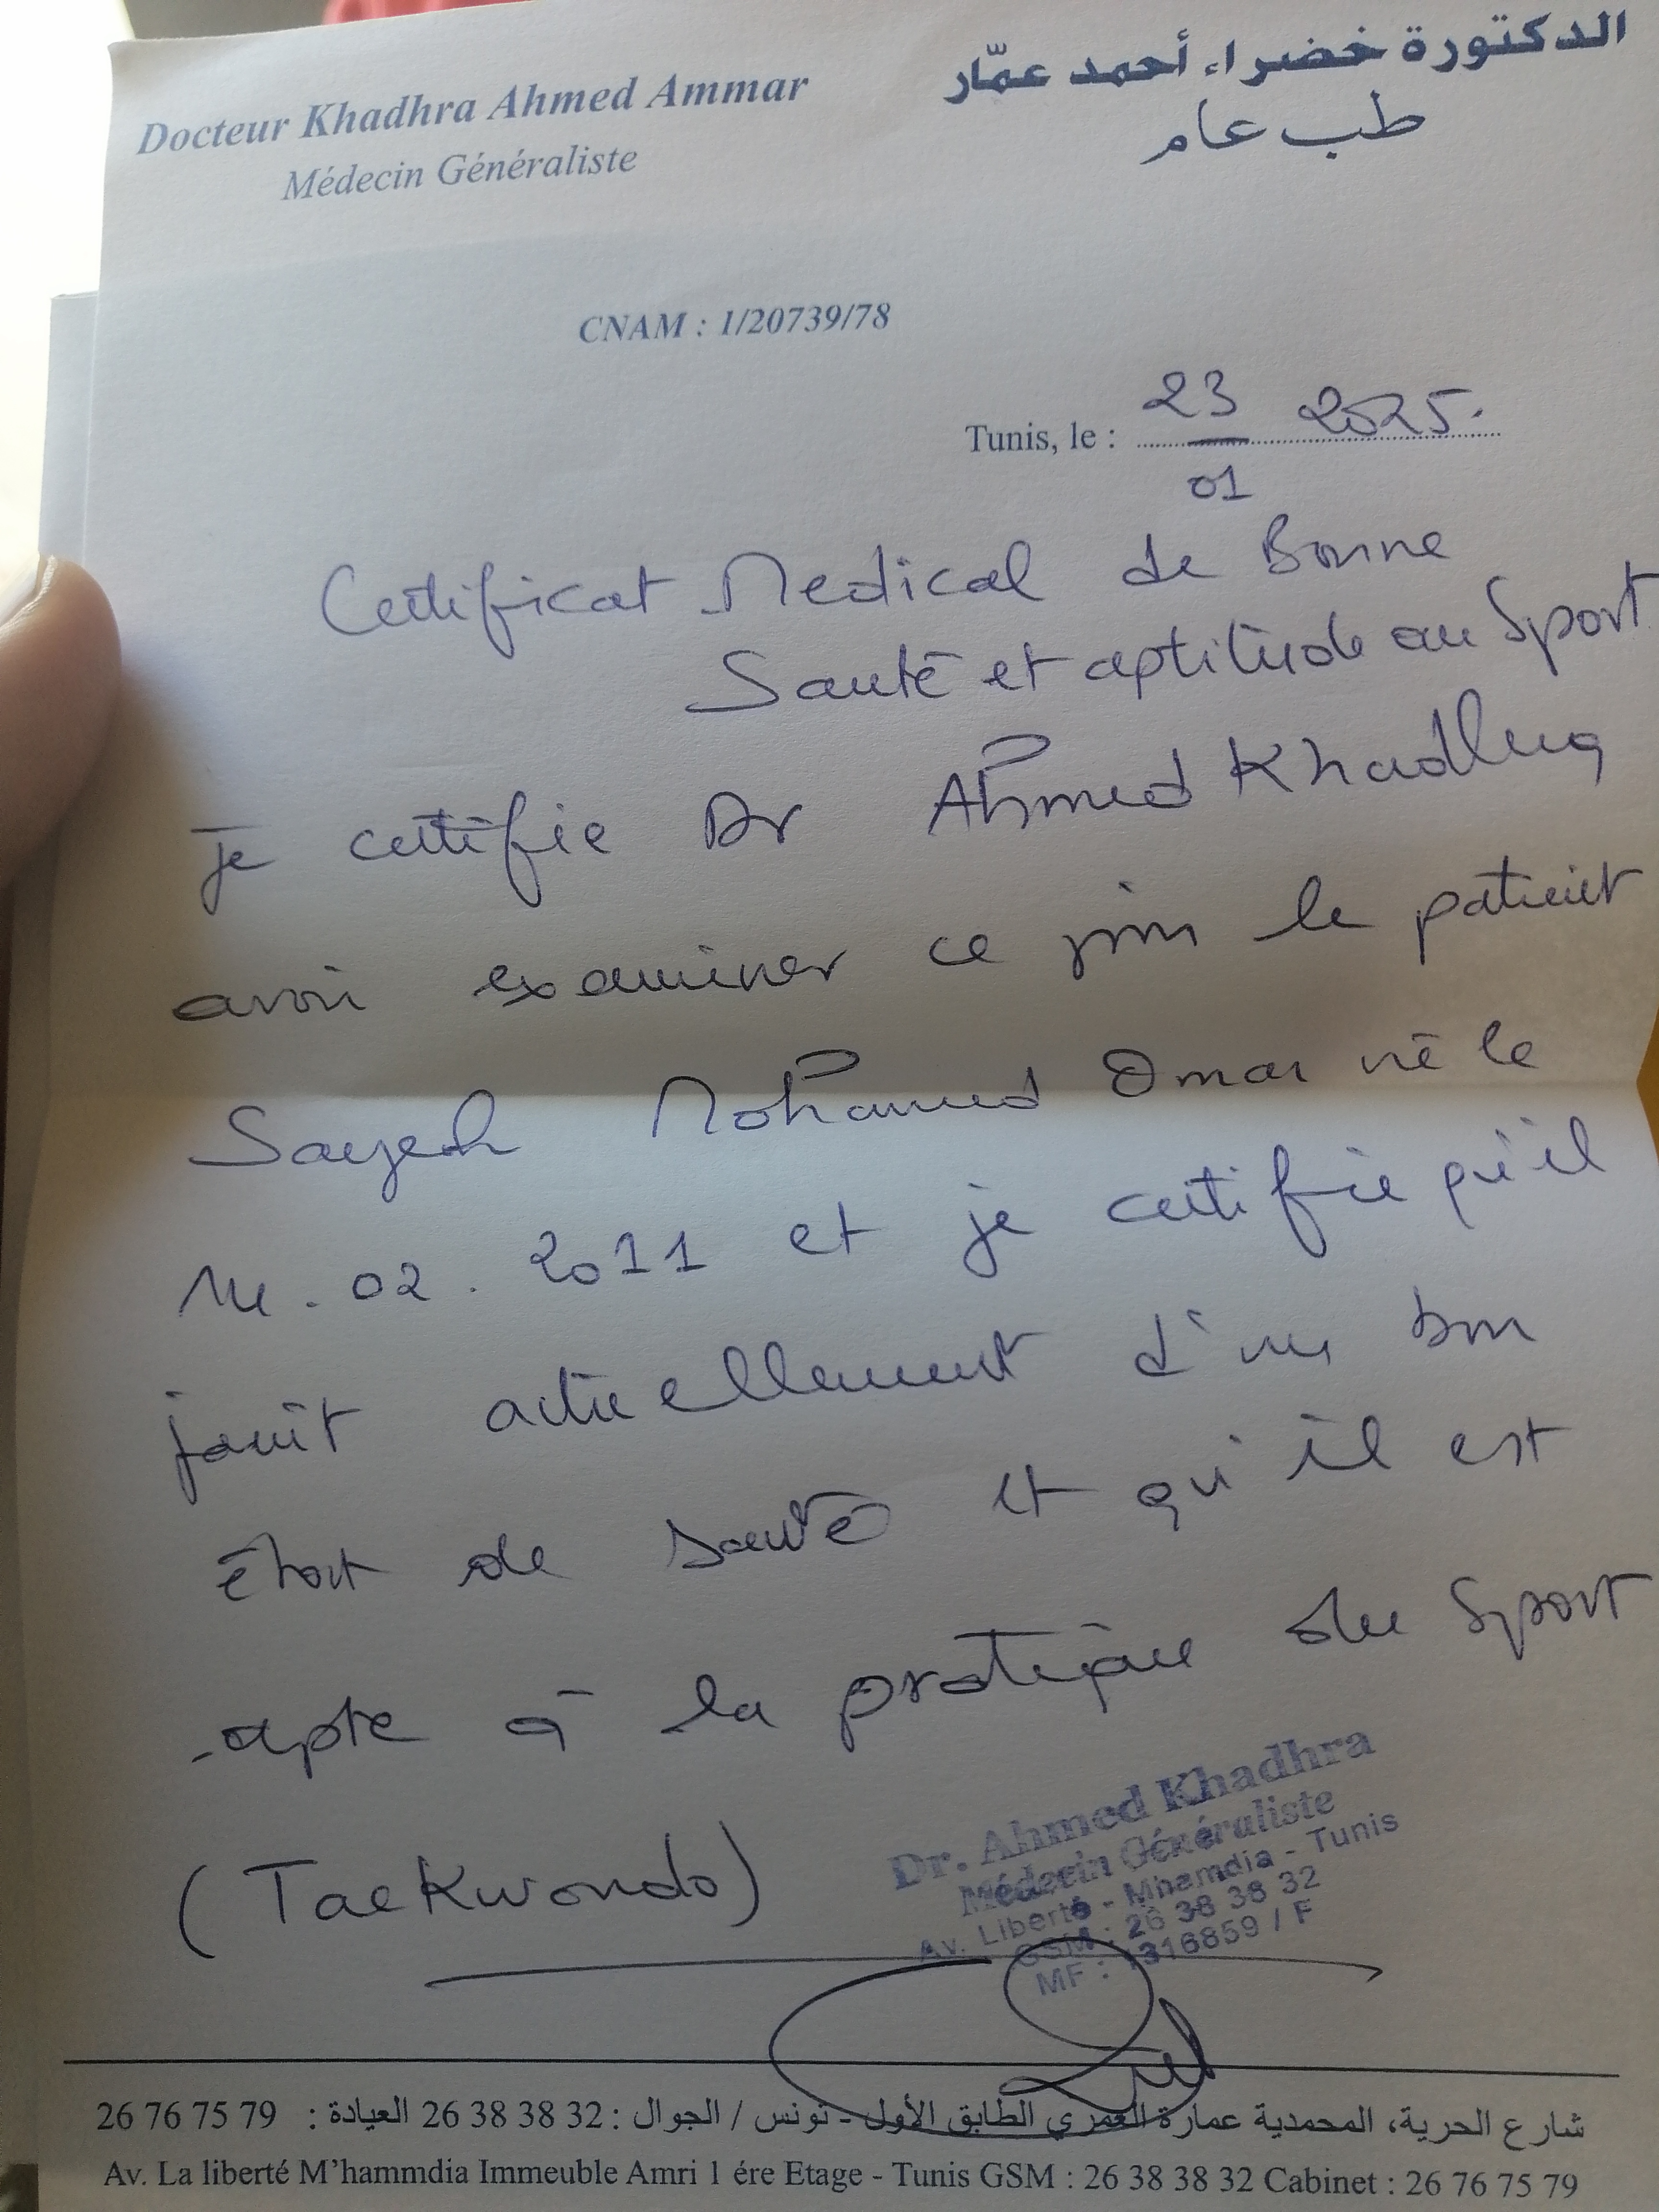 Docteur Khadhra Ahmed Ammar
الدكتورة خضراء أحمد عمّار
Médecin Généraliste
طب عام
CNAM : 1/20739/78
Tunis, le : 23/01 2025.
Certificat Medical de Bonne
Santé et aptitude au Sport
Je certifie Dr Ahmed Khadhra
avoir examiner ce jour le patient
Sayeh Mohamed Omar né le
14.02.2011 et je certifie qu'il
jouit actuellement d'un bon
état de santé et qu'il est
apte à la pratique du Sport
(Taekwondo)
Dr. Ahmed Khadhra
Médecin Généraliste
Av. Liberté - Mhamdia - Tunis
GSM : 26 38 38 32
MF : 1316859 / F
شارع الحرية، المحمدية عمارة العمري الطابق الأول - تونس / الجوال : 32 38 38 26 العيادة : 79 75 76 26
Av. La liberté M'hammdia Immeuble Amri 1 ére Etage - Tunis GSM : 26 38 38 32 Cabinet : 26 76 75 79